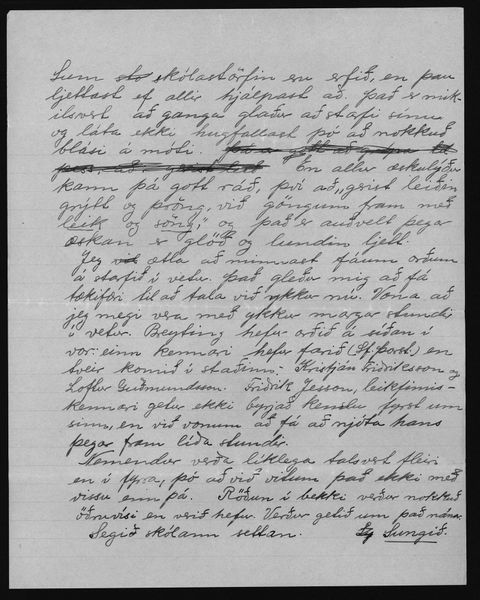 Sum skólastörfin eru erfið, en þau
ljettast ef allir hjálpast að. Það er mik-
ilsvert að ganga glaður að starfi sínu
og láta ekki hugfallast þó að nokkuð
blási á móti. En allur æskulýður
kann þá gott ráð, því að „gerist leiðin
grýtt og þröng, við göngum fram með
leik og söng," og það er auðvelt þegar
æskan er glöð og lundin ljett.
Jeg ætla að minnast fáum orðum
á starfið í vetur. Það gleður mig að fá
tækifæri til að tala við ykkur nú. Vona að
jeg megi vera með ykkur margar stundir
í vetur. Breyting hefur orðið á síðan í
vor: einn kennari hefur farið (Sf. Þorst.) en
tveir komið í staðinn: Kristján Friðriksson og
Loftur Guðmundsson. Friðrik Jesson, leikfimis-
kennari getur ekki byrjað kenslu fyrst um
sinn, en við vonum að fá að njóta hans
þegar fram líða stundir.
Nemendur verða líklega talsvert fleiri
en í fyrra, þó að við vitum það ekki með
vissu enn þá. Röðun í bekki verður nokkuð
öðruvísi en verið hefur. Verður getið um það nánar.
Segið skólann settan. Sungið.